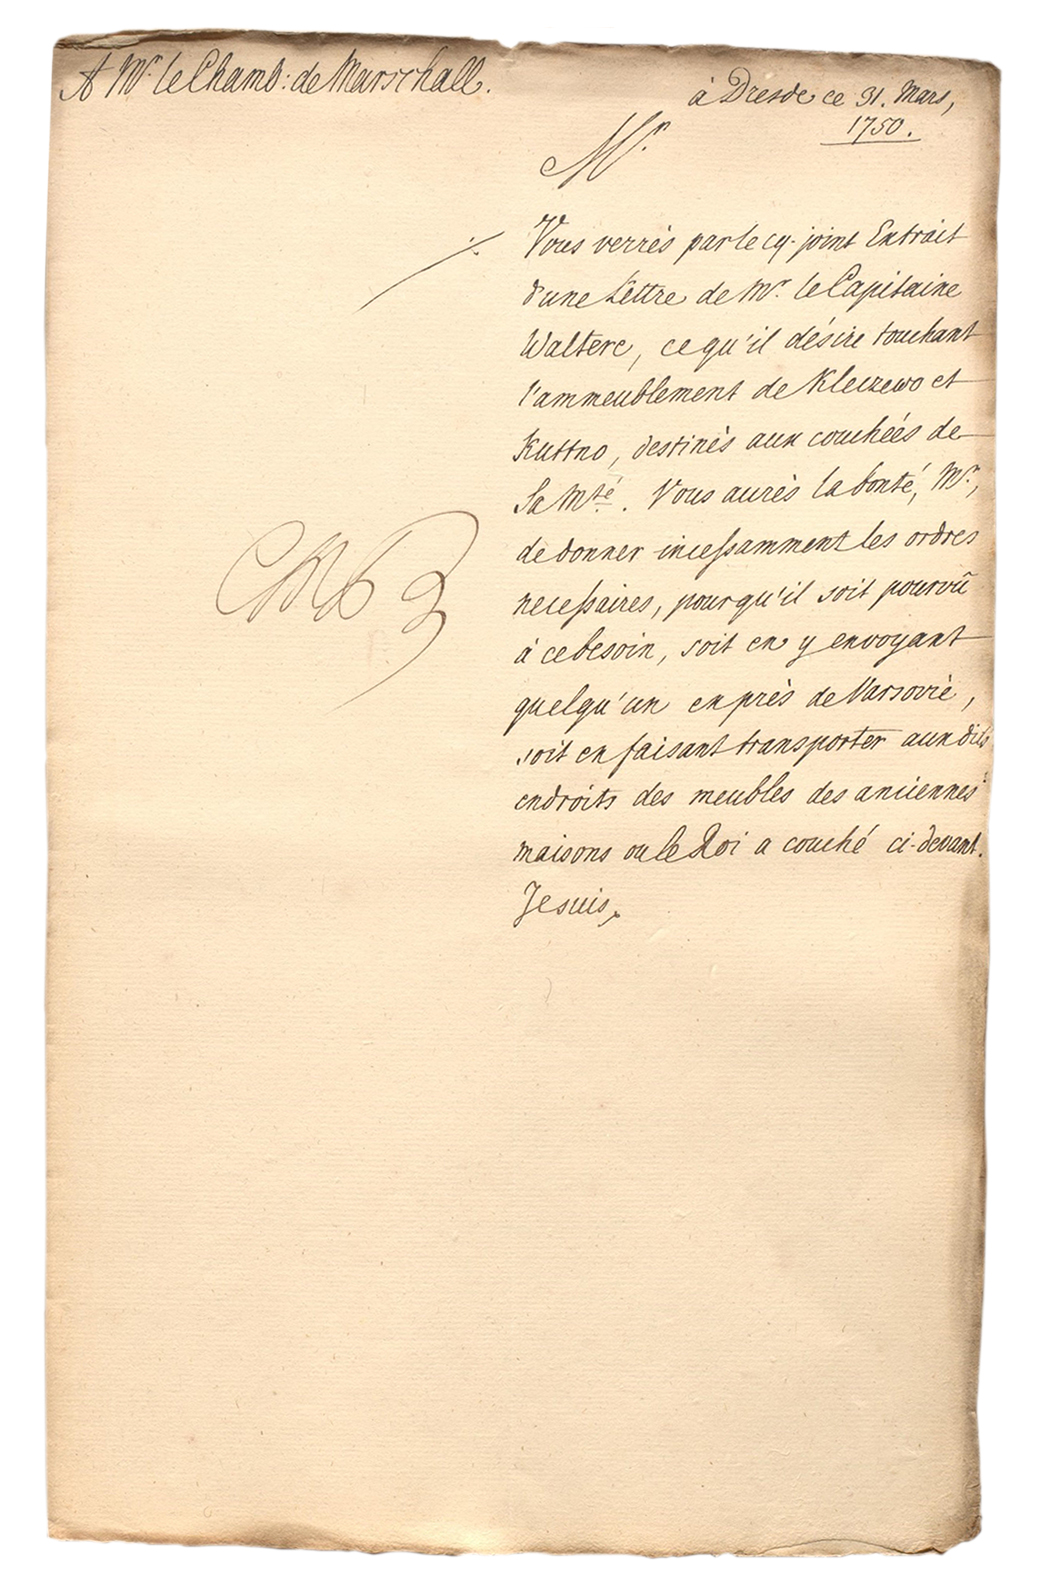 A Mr. le Chamb: de Marschall.
à Dresde ce 31. Mars,
1750.
Mr.
Vous verrés par le cy-joint Extrait
d'une Lettre de Mr. le Capitaine
Walterc, ce qu'il désire touchant
l'ammeublement de Kleczewo et
Kuttno, destinés aux couchées de
Sa Mté. Vous aurés la bonté, Mr.,
de donner incessamment les ordres
necessaires, pour qu'il soit pourvû
à ce besoin, soit en y envoyant
quelqu'un exprès de Varsovie,
soit en faisant transporter aux dits
endroits des meubles des anciennes
maisons ou le Roi a couché ci-devant.
Je suis,